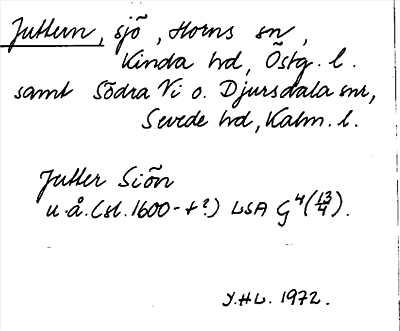 Juttern, sjö, Horns sn,
Kinda hd, Östg. l.
samt Södra Vi o. Djursdala snr,
Sevede hd, Kalm. l.
Jutter Siön
u.å. (sl. 1600-t?) LSA G4(13/4).
Y.H.L. 1972.